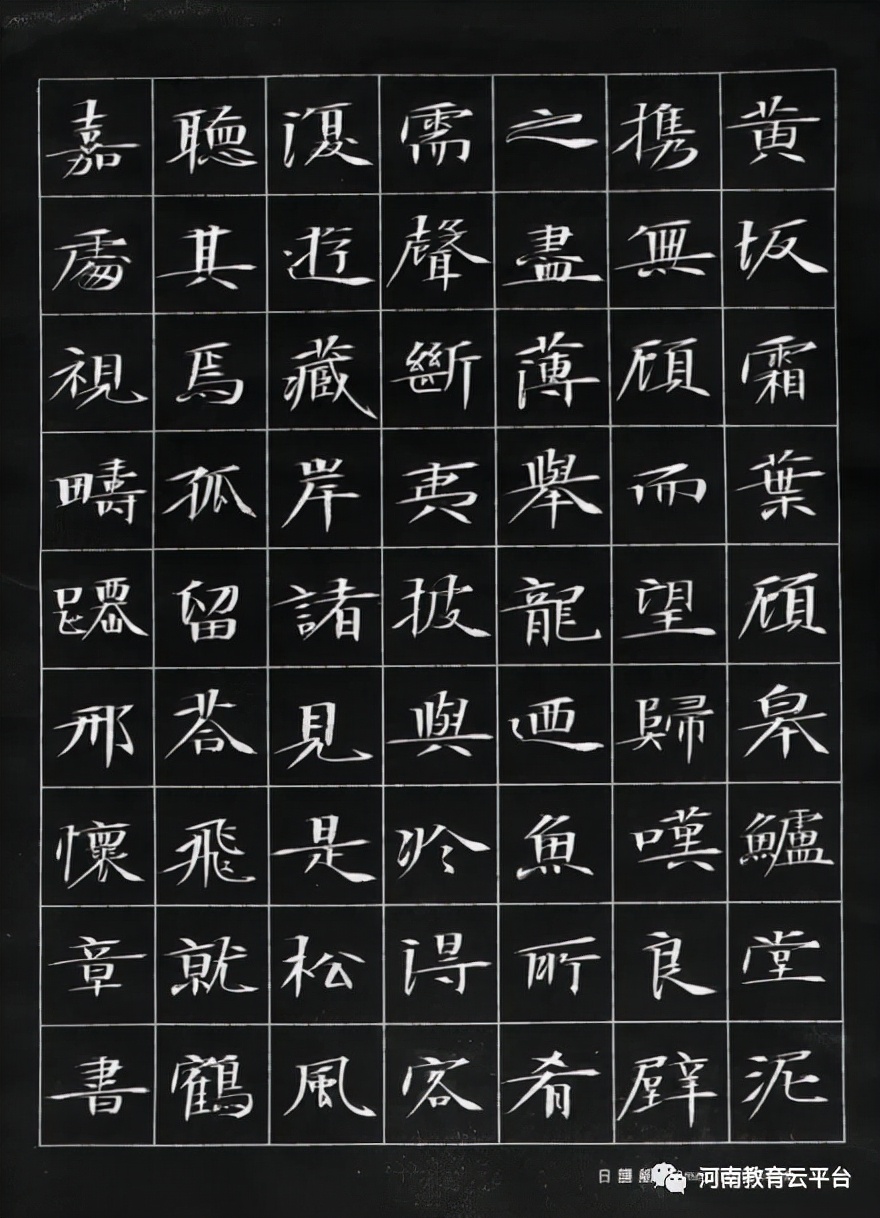 黄坂霜葉顧皋鱸堂泥
携無顧而望歸嘆良壁
之盡薄舉龍迺魚所肴
需聲斷夷披與冷得客
復遊藏岸諸見是松風
聽其焉孤留答飛就鶴
嘉處視疇躚邢懷章書
河南教育云平台